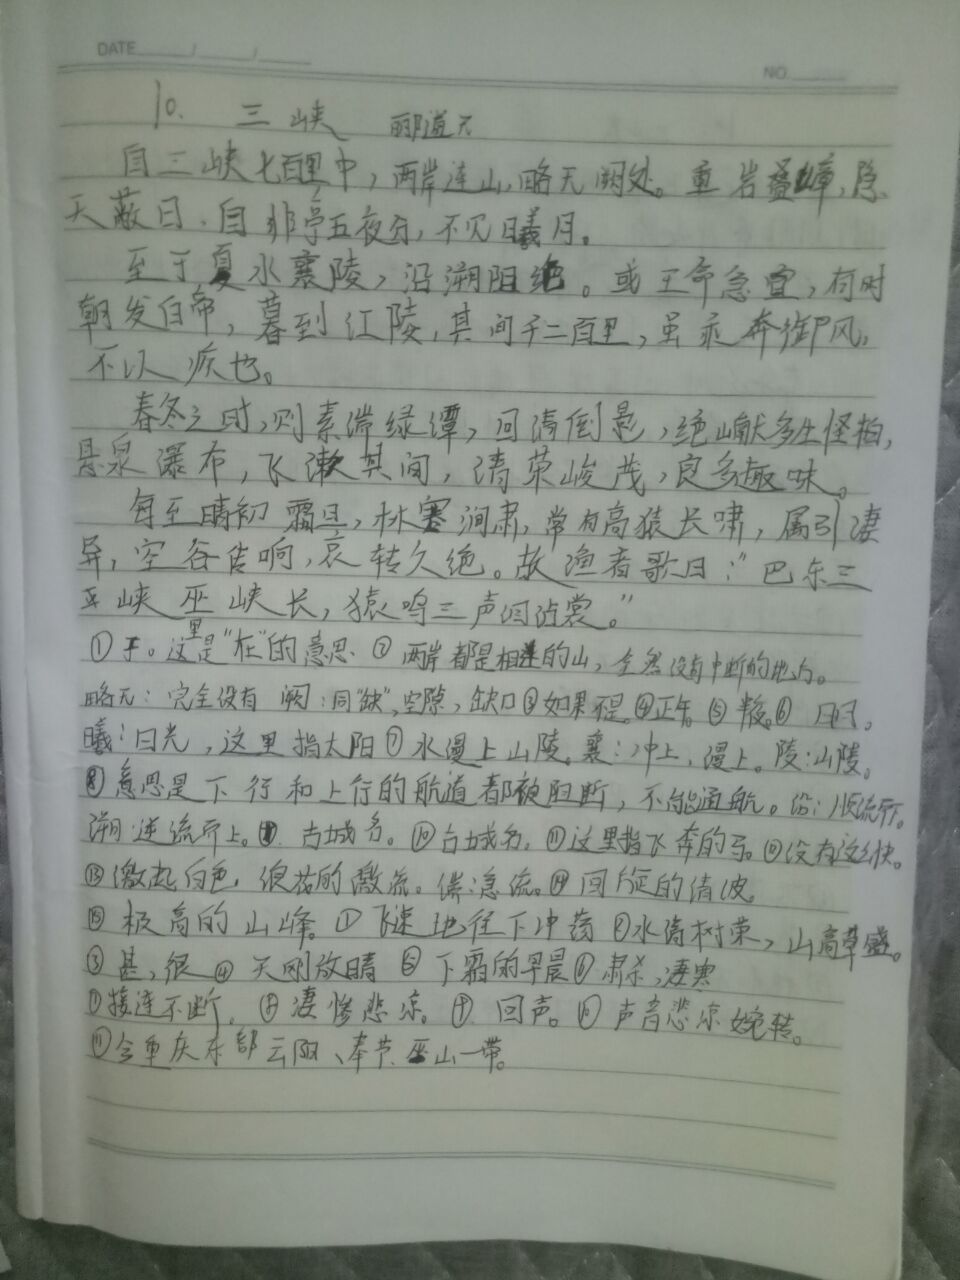 DATE / /
NO.
10. 三峡 郦道元
自三峡七百里中，两岸连山，略无阙处。重岩叠嶂，隐
天蔽日、自非亭五夜分，不见曦月。
至于夏水襄陵，沿溯阻绝。或王命急宣，有时
朝发白帝，暮到江陵，其间千二百里，虽乘奔御风，
不以疾也。
春冬之时，则素湍绿潭，回清倒影，绝巘多生怪柏，
悬泉瀑布，飞漱其间，清荣峻茂，良多趣味。
每至晴初霜旦，林寒涧肃，常有高猿长啸，属引凄
异，空谷传响，哀转久绝。故渔者歌曰："巴东三
峡巫峡长，猿鸣三声泪沾裳。"
①于。这里是"在"的意思 ② 两岸都是相连的山，全然没有中断的地方。
略无：完全没有 阙：同"缺"，空隙，缺口③如果不是。④正午。⑤半夜。⑥日月。
曦：日光，这里指太阳⑦水漫上山陵。襄：冲上，漫上。陵：山陵。
⑧意思是下行和上行的航道都被阻断，不能通航。沿：顺流而下。
溯：逆流而上。⑨. 古城名。⑩古城名。⑪这里指飞奔的马。⑫没有这么快。
⑬激起白色浪花的激流。湍：急流。⑭回旋的清波。
⑮极高的山峰。① 飞速地往下冲荡 ②水清树荣，山高草盛。
③甚，很 ④天刚放晴 ⑤下霜的早晨⑥肃杀，凄寒
⑦接连不断。⑧凄惨悲凉。⑨. 回声。⑩声音悲凉婉转。
⑪今重庆东部云阳、奉节、巫山一带。